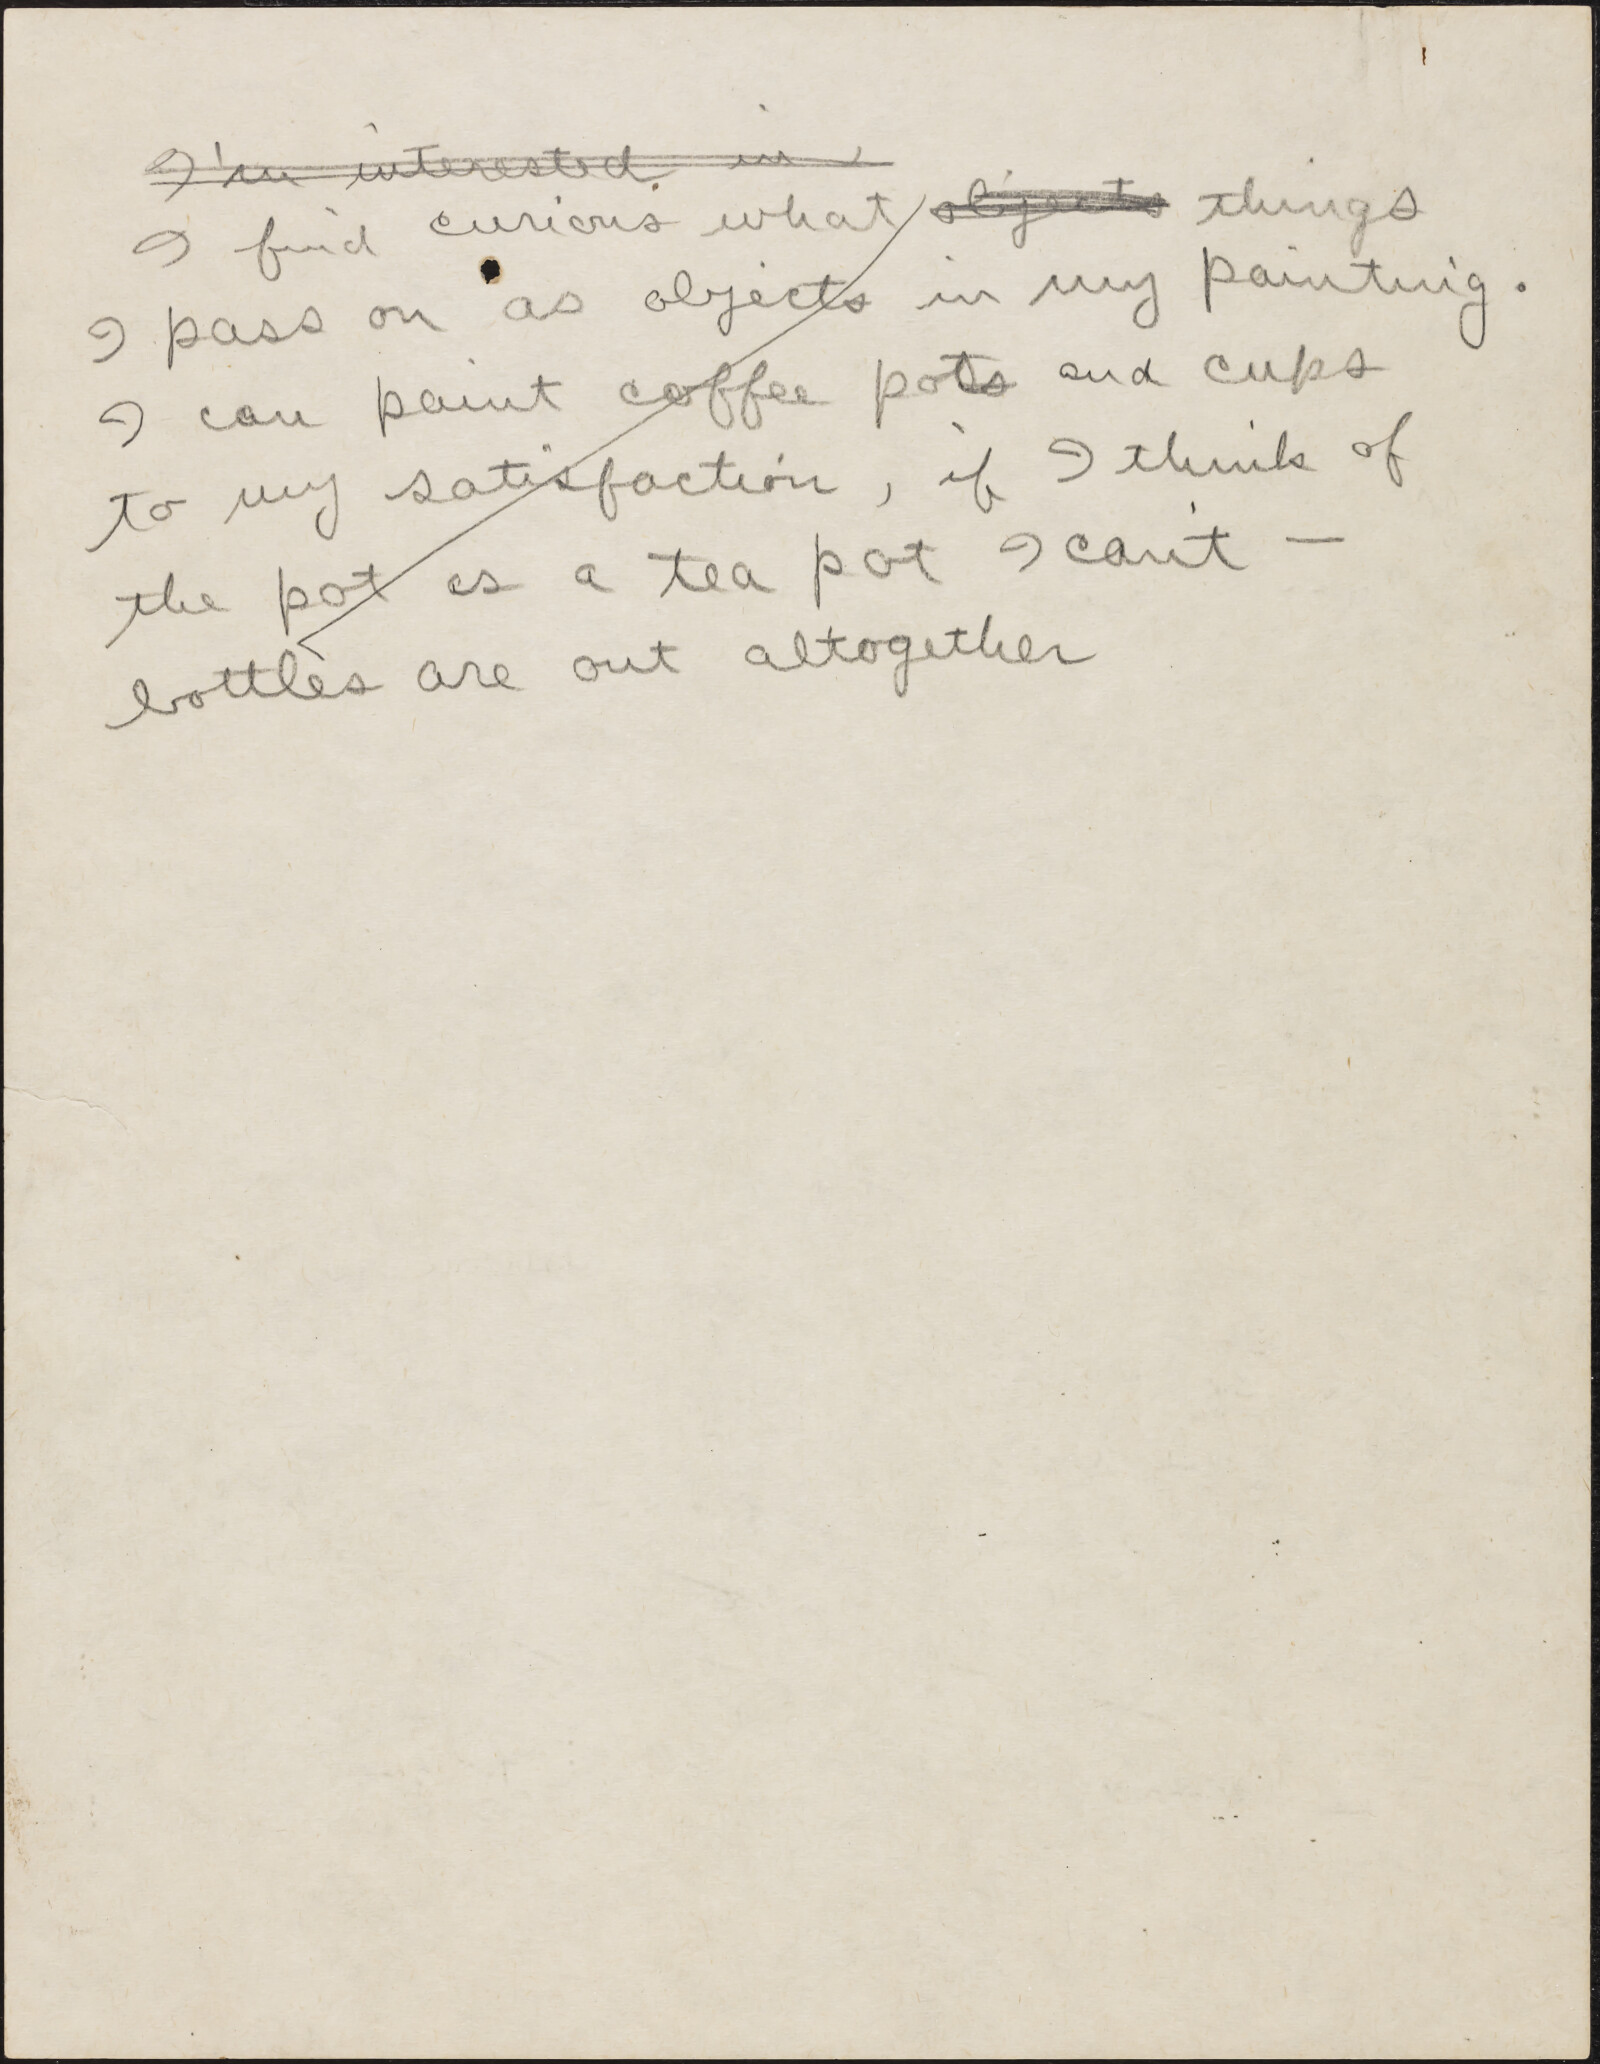 I'm interested in
I find curious what objects things
I pass on as objects in my painting.
I can paint coffee pots and cups
to my satisfaction, if I think of
the pot as a tea pot I can't —
bottles are out altogether